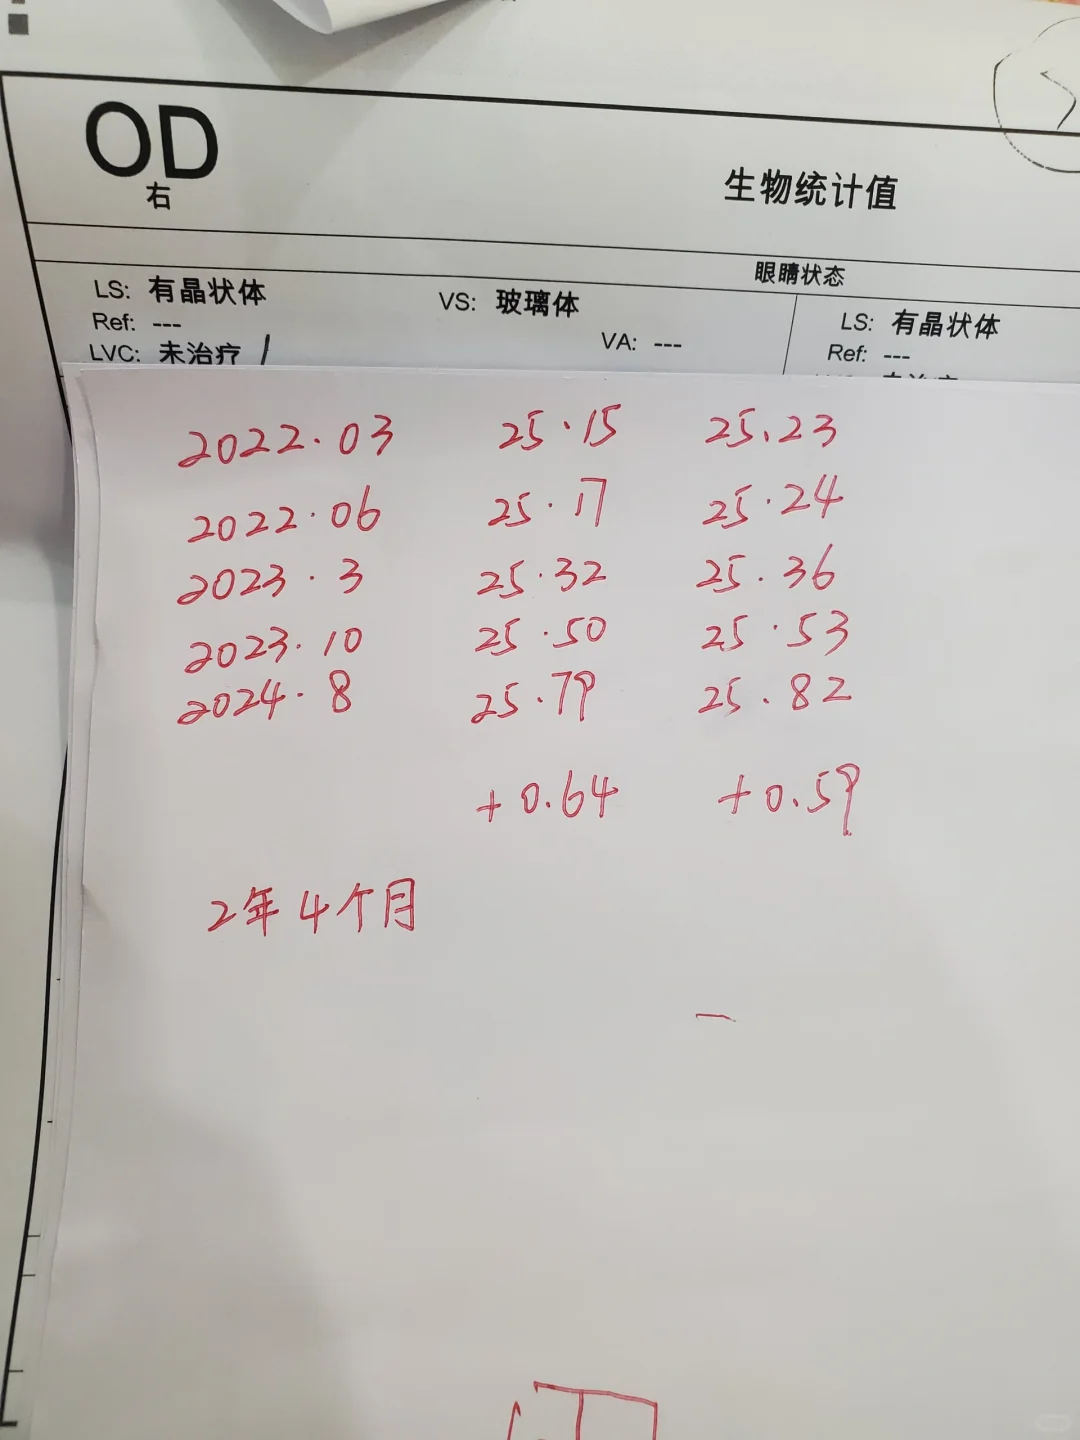 OD
右
生物统计值
眼睛状态
LS: 有晶状体
VS: 玻璃体
LS: 有晶状体
Ref: ---
VA: ---
Ref: ---
LVC: 未治疗
2022.03 25.15 25.23
2022.06 25.17 25.24
2023.3 25.32 25.36
2023.10 25.50 25.53
2024.8 25.79 25.82
+0.64 +0.59
2年4个月